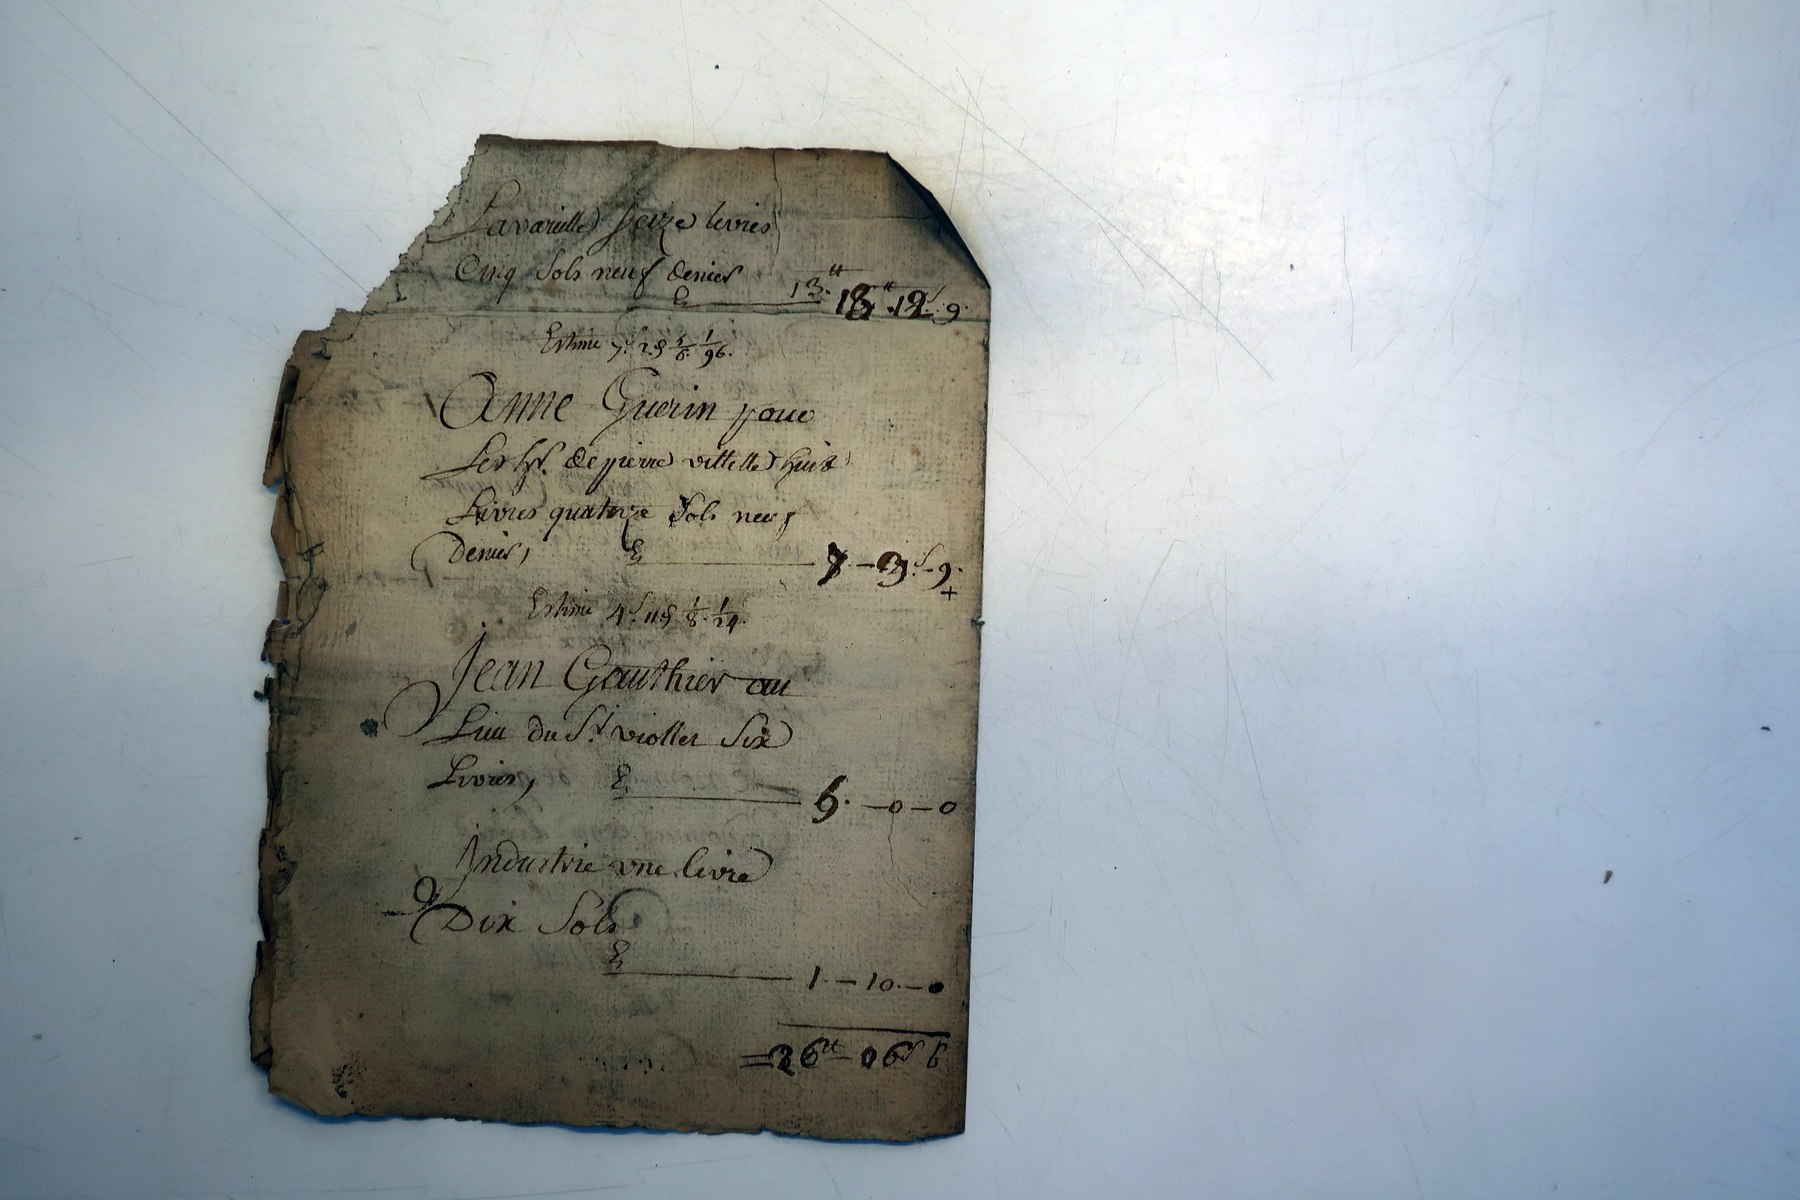 Lavarielle Seize livres
Cinq Sols neuf denier
13.tt 18tt.12.9.
Estime 7s. 2.d 1/6. 1/96.
Anne Guerin pour
Les hrs. de pierre vittelle huit
Livres quatorze Sols neuf
Denier,
7 - 3s. - 9.
Estime 4s. 11d 1/8. 1/24.
Jean Gauthier au
Lieu du Sr. viollet Six
Livres,
6. - 0 - 0
Industrie une livre
Dix Sols
1. - 10. - 0
= 36tt - 06s 6